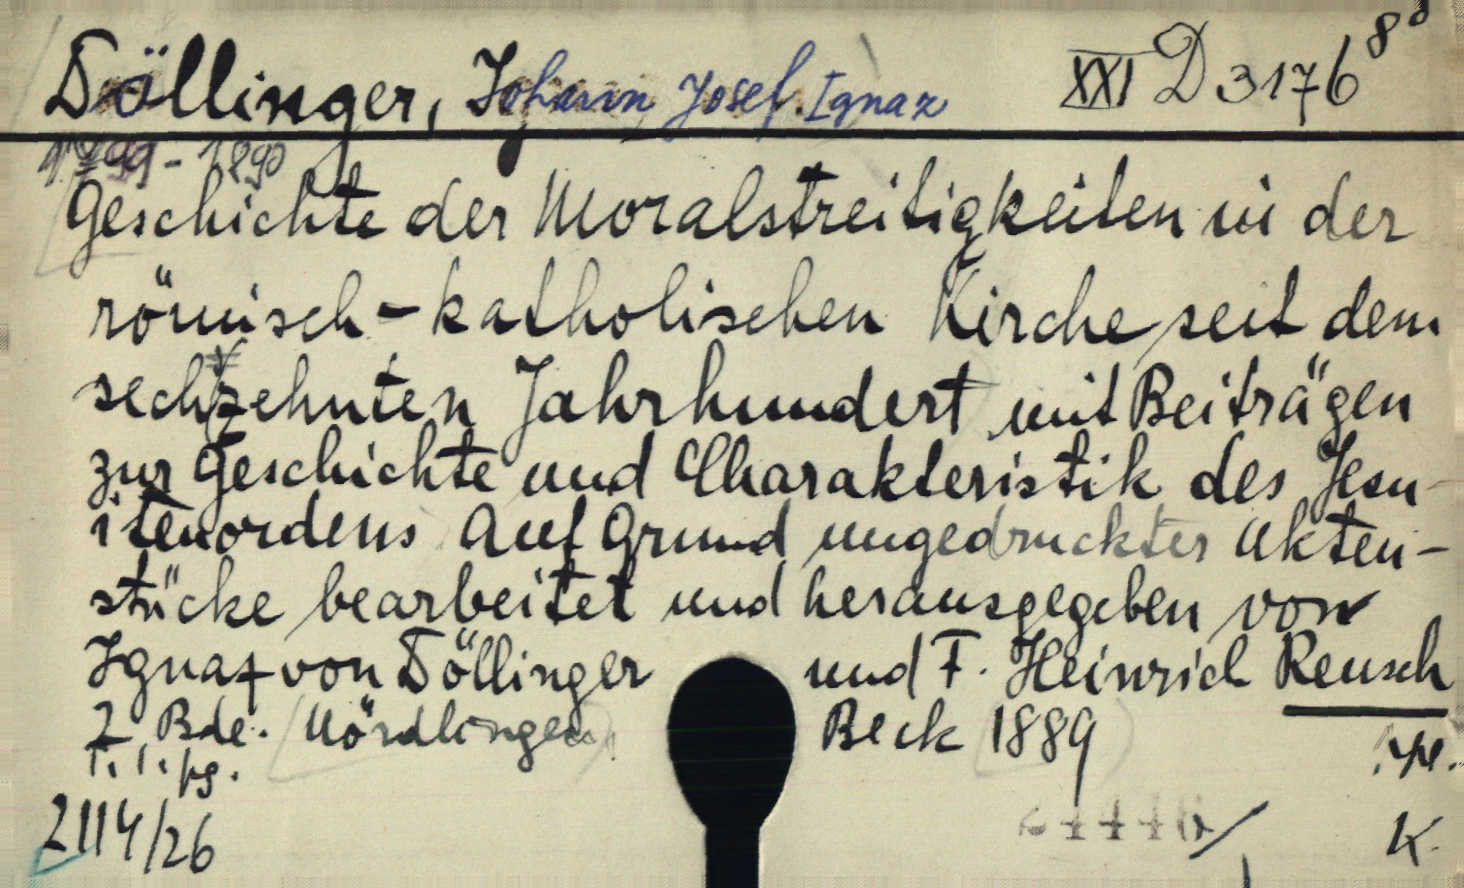 Döllinger, Johann Josef Ignaz XXI D 3176 8°
1799-1890
Geschichte der Moralstreitigkeiten in der
römisch-katholischen Kirche seit dem
sechzehnten Jahrhundert mit Beiträgen
zur Geschichte und Charakteristik des Jesu-
itenordens Auf Grund ungedruckter Akten-
stücke bearbeitet und herausgegeben von
Ignaz von Döllinger und F. Heinrich Reusch
2 Bde. Nördlingen Beck 1889
2114/26 K.